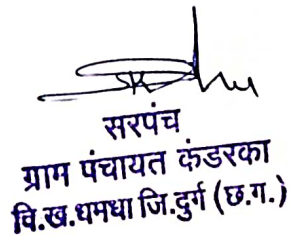 सरपंच
ग्राम पंचायत कंडरका
वि.ख.धमधा जि.दुर्ग (छ.ग.)